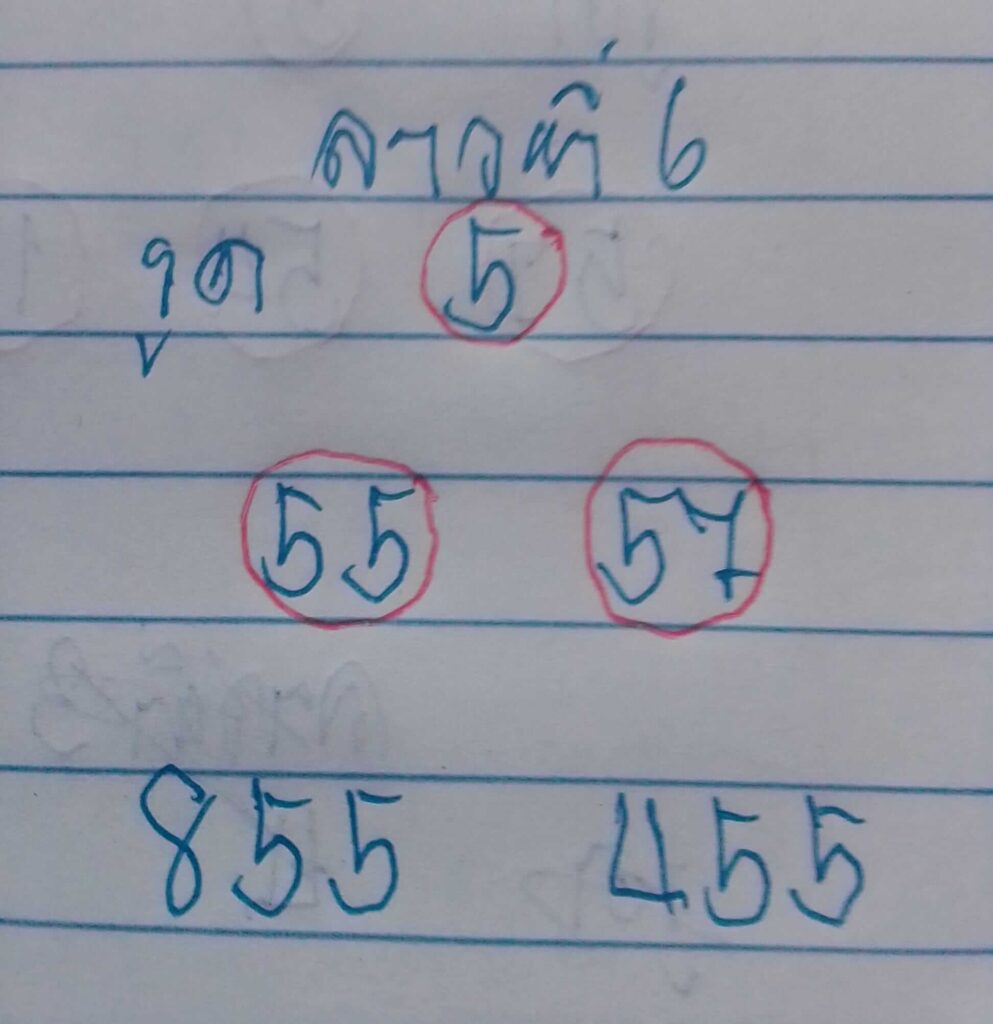 ลาวที่ 6
จุด 5
55 57
855 455